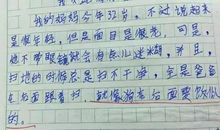 我的妈妈今年32岁，不过说起来
是很年轻，但是面目是很老，可是，
他不带眼镜就会有点儿迷糊，并且，
扫地的时候总是扫不干净，老是爸爸
在后面跟着扫，就像狗在后面要饭似
的。